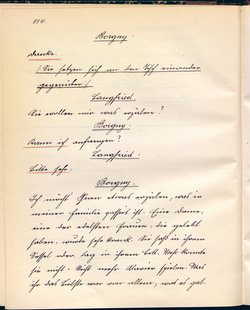 154.
Borgny.
danke.
(Sie setzen sich an den Tisch einander
gegenüber.)
Langfried
Sie wollen mir was erzälen?
Borgny.
Kann ich anfangen?
Langfried.
Bitte sehr.
Borgny.
Ich muss Ihnen etwas erzälen, was in
meiner Familie passirt ist. Eine Dame,
eine der edelsten Frauen, die gelebt
haben, wurde sehr krank. Sie saß in ihrem
Sessel den tag in ihrem Bett. Mehr konnte
sie nicht. Nicht mehr Klavier spielen. Was
ihr das Liebste war von allem, was es gab.